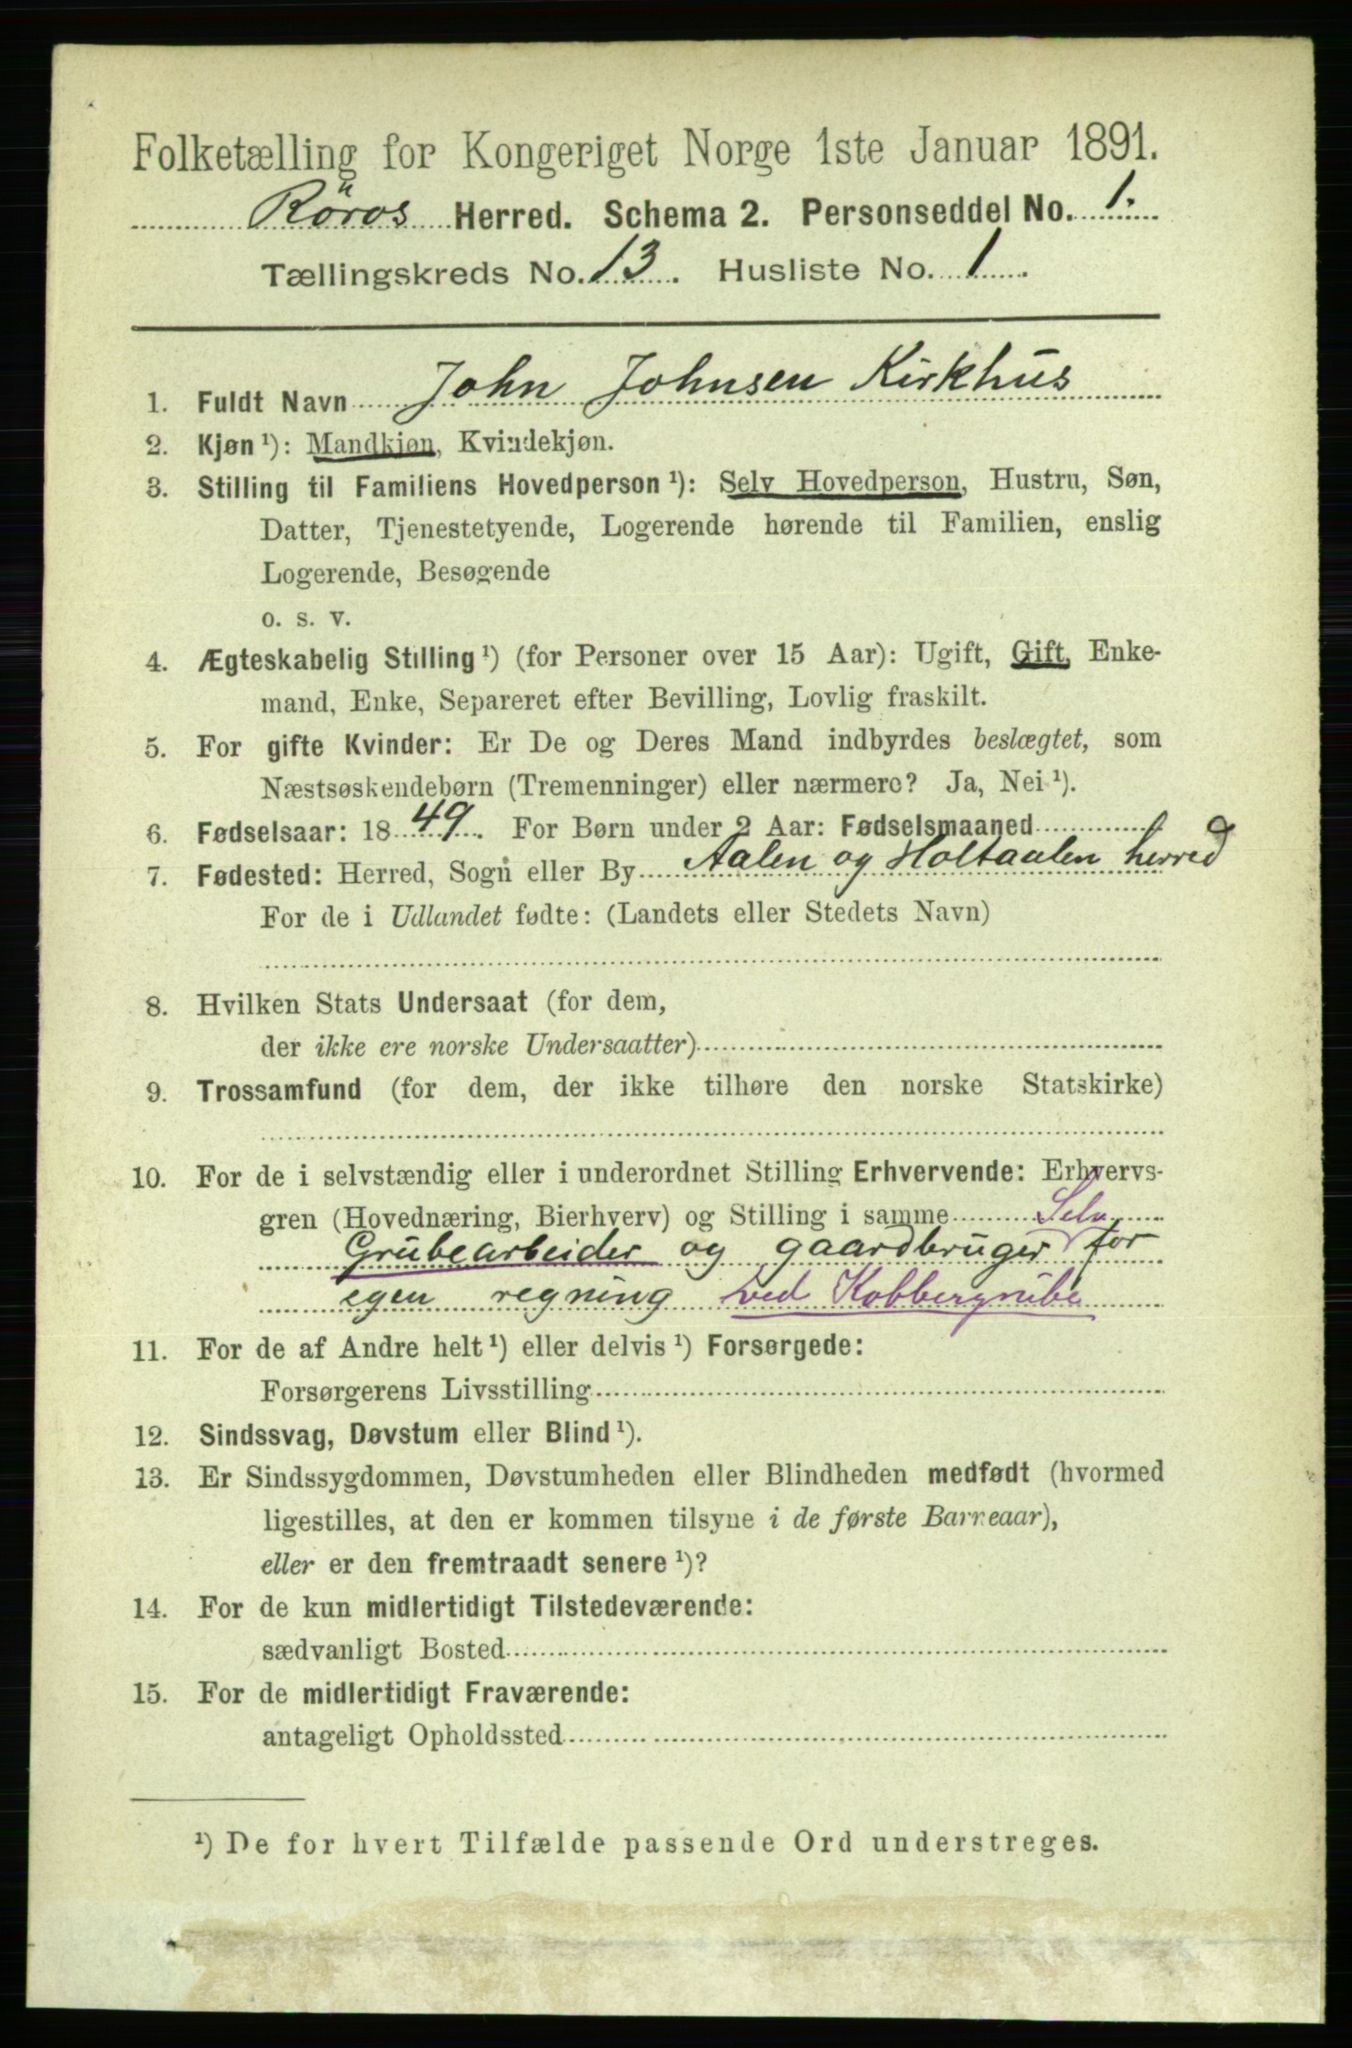 Folketælling for Kongeriget Norge 1ste Januar 1891.
Röros Herred. Schema 2. Personseddel No. 1.
Tællingskreds No. 13. Husliste No. 1.
1. Fuldt Navn John Johnsen Kirkhus
2. Kjøn ¹): Mandkjøn, Kvindekjøn.
3. Stilling til Familiens Hovedperson ¹): Selv Hovedperson, Hustru, Søn,
Datter, Tjenestetyende, Logerende hørende til Familien, enslig
Logerende, Besøgende
o. s. v.
4. Ægteskabelig Stilling ¹) (for Personer over 15 Aar): Ugift, Gift, Enke-
mand, Enke, Separeret efter Bevilling, Lovlig fraskilt.
5. For gifte Kvinder: Er De og Deres Mand indbyrdes beslægtet, som
Næstsøskendebørn (Tremenninger) eller nærmere? Ja, Nei ¹).
6. Fødselsaar: 1849. For Børn under 2 Aar: Fødselsmaaned
7. Fødested: Herred, Sogn eller By Aalen og Holtaalen herred
For de i Udlandet fødte: (Landets eller Stedets Navn)
8. Hvilken Stats Undersaat (for dem,
der ikke ere norske Undersaatter)
9. Trossamfund (for dem, der ikke tilhøre den norske Statskirke)
10. For de i selvstændig eller i underordnet Stilling Erhvervende: Erhvervs-
gren (Hovednæring, Bierhverv) og Stilling i samme Selv
Grubearbeider og gaardbruger for
egen regning ved Kobbergrube
11. For de af Andre helt ¹) eller delvis ¹) Forsørgede:
Forsørgerens Livsstilling
12. Sindssvag, Døvstum eller Blind ¹).
13. Er Sindssygdommen, Døvstumheden eller Blindheden medfødt (hvormed
ligestilles, at den er kommen tilsyne i de første Barneaar),
eller er den fremtraadt senere ¹)?
14. For de kun midlertidigt Tilstedeværende:
sædvanligt Bosted
15. For de midlertidigt Fraværende:
antageligt Opholdssted
¹) De for hvert Tilfælde passende Ord understreges.